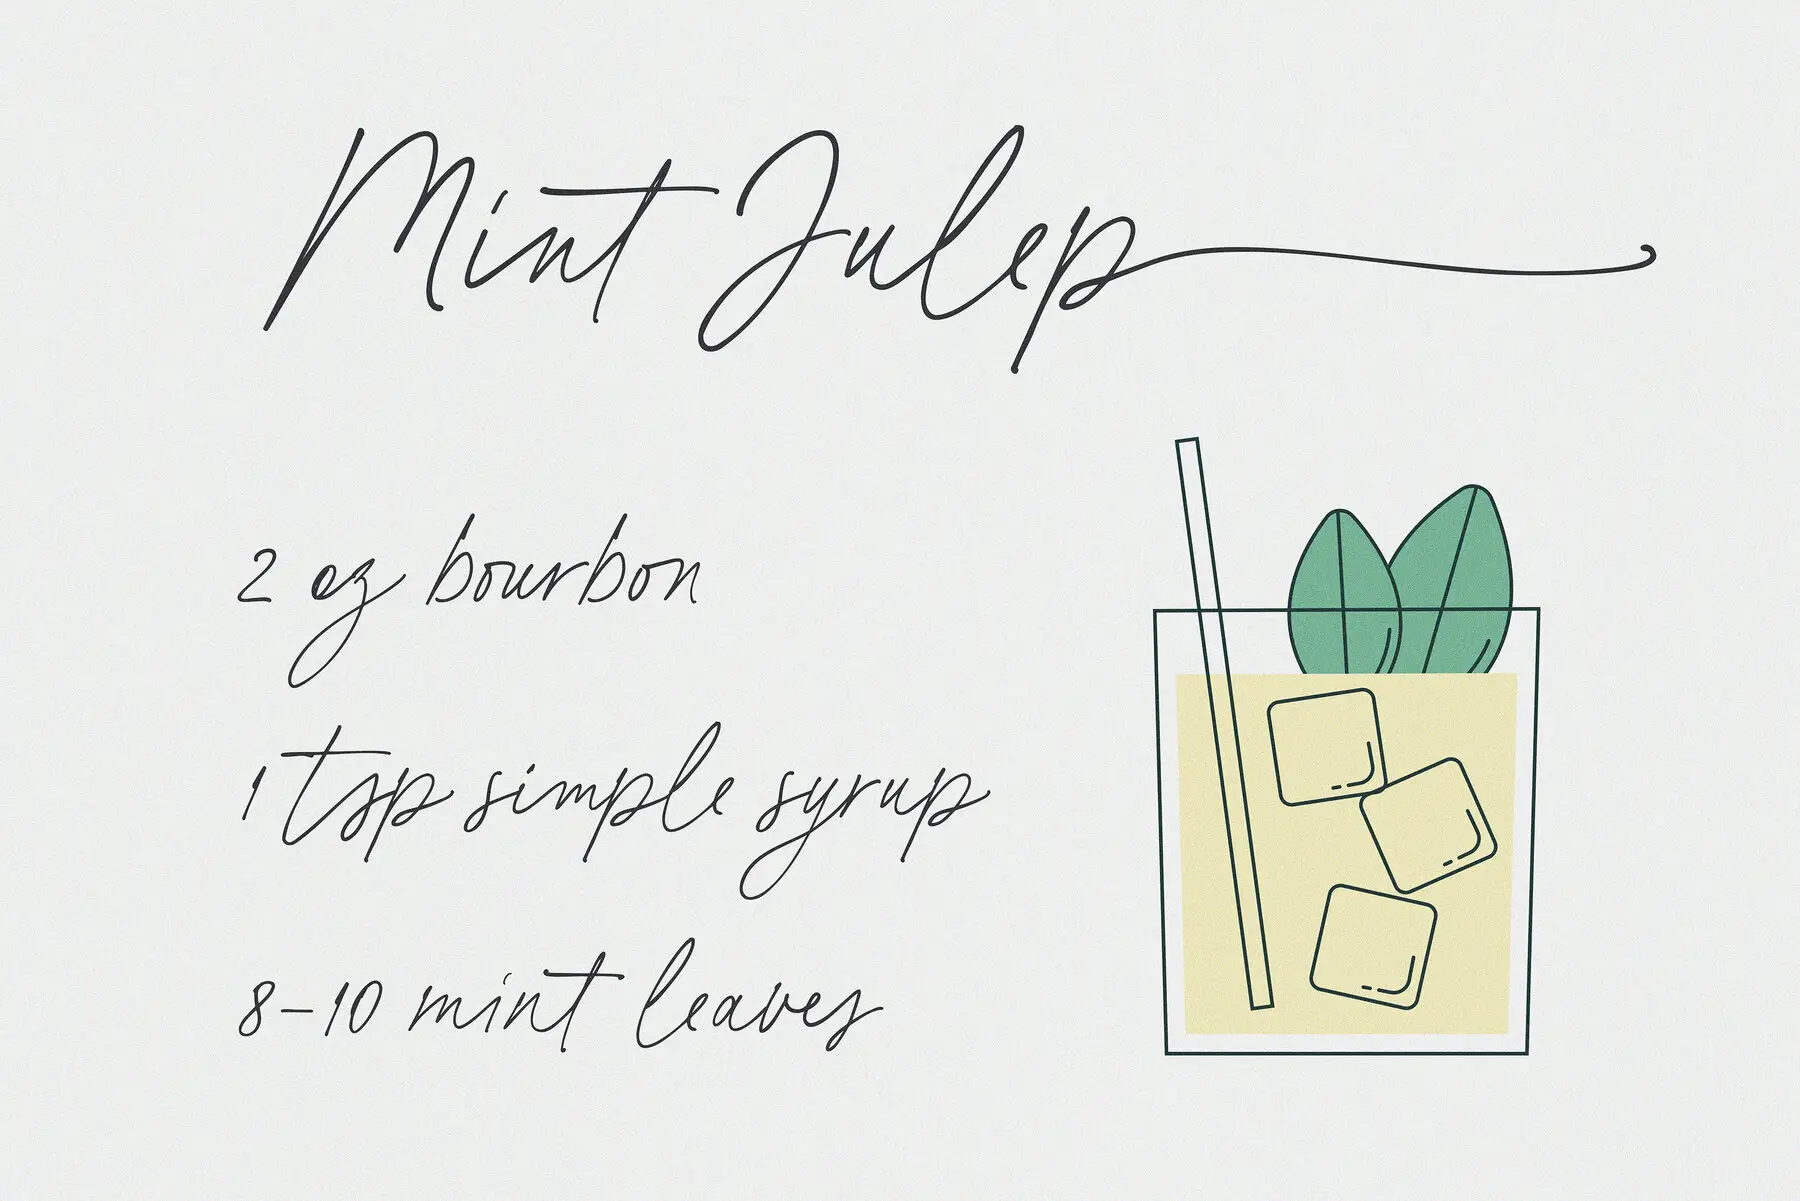 Mint Julep
2 oz bourbon
1 tsp simple syrup
8-10 mint leaves